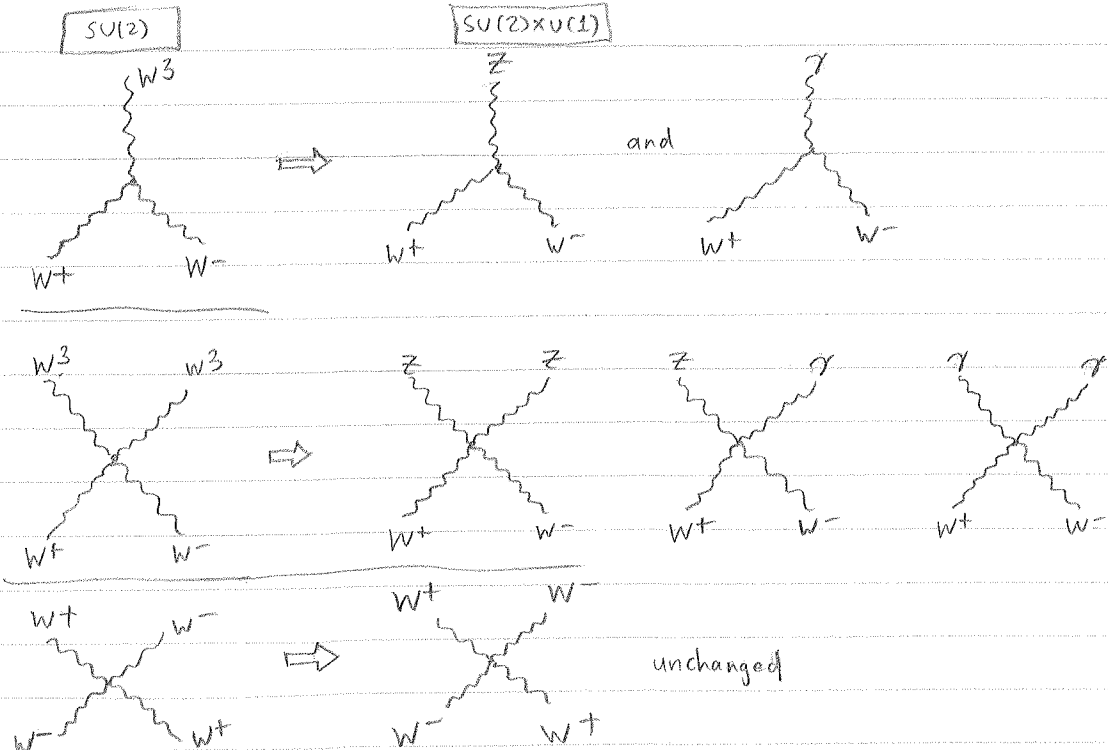 SU(2) SU(2)×U(1)
W3 Z γ
⇒ and
W+ W- W+ W- W+ W-
W3 W3 Z Z Z γ γ γ
⇒
W+ W- W+ W- W+ W- W+ W-
W+ W- W+ W-
⇒ unchanged
W- W+ W- W+